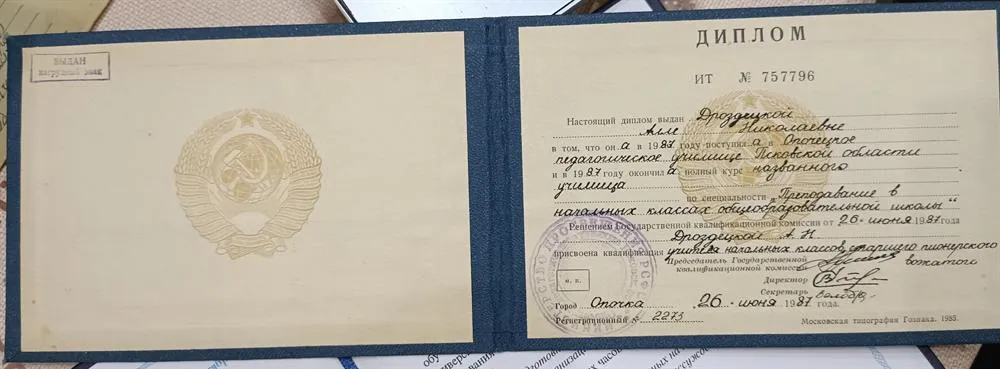 ВЫДАН
нагрудный знак
ДИПЛОМ
ИТ № 757796
Настоящий диплом выдан Дроздецкой
Алле Николаевне
в том, что он а в 1987 году поступил а в Опочецкое
педагогическое училище Псковской области
и в 1987 году окончил а полный курс названного
училища
по специальности „Преподавание в
начальных классах общеобразовательной школы"
Решением Государственной квалификационной комиссии от 26 июня 1987 года
Дроздецкой А. Н.
присвоена квалификация учителя начальных классов, старшего пионерского
вожатого
Председатель Государственной
квалификационной комиссии
Директор
Секретарь
М. П.
Город Опочка 26 июня 1987 года.
Регистрационный № 2273
Московская типография Гознака. 1985.